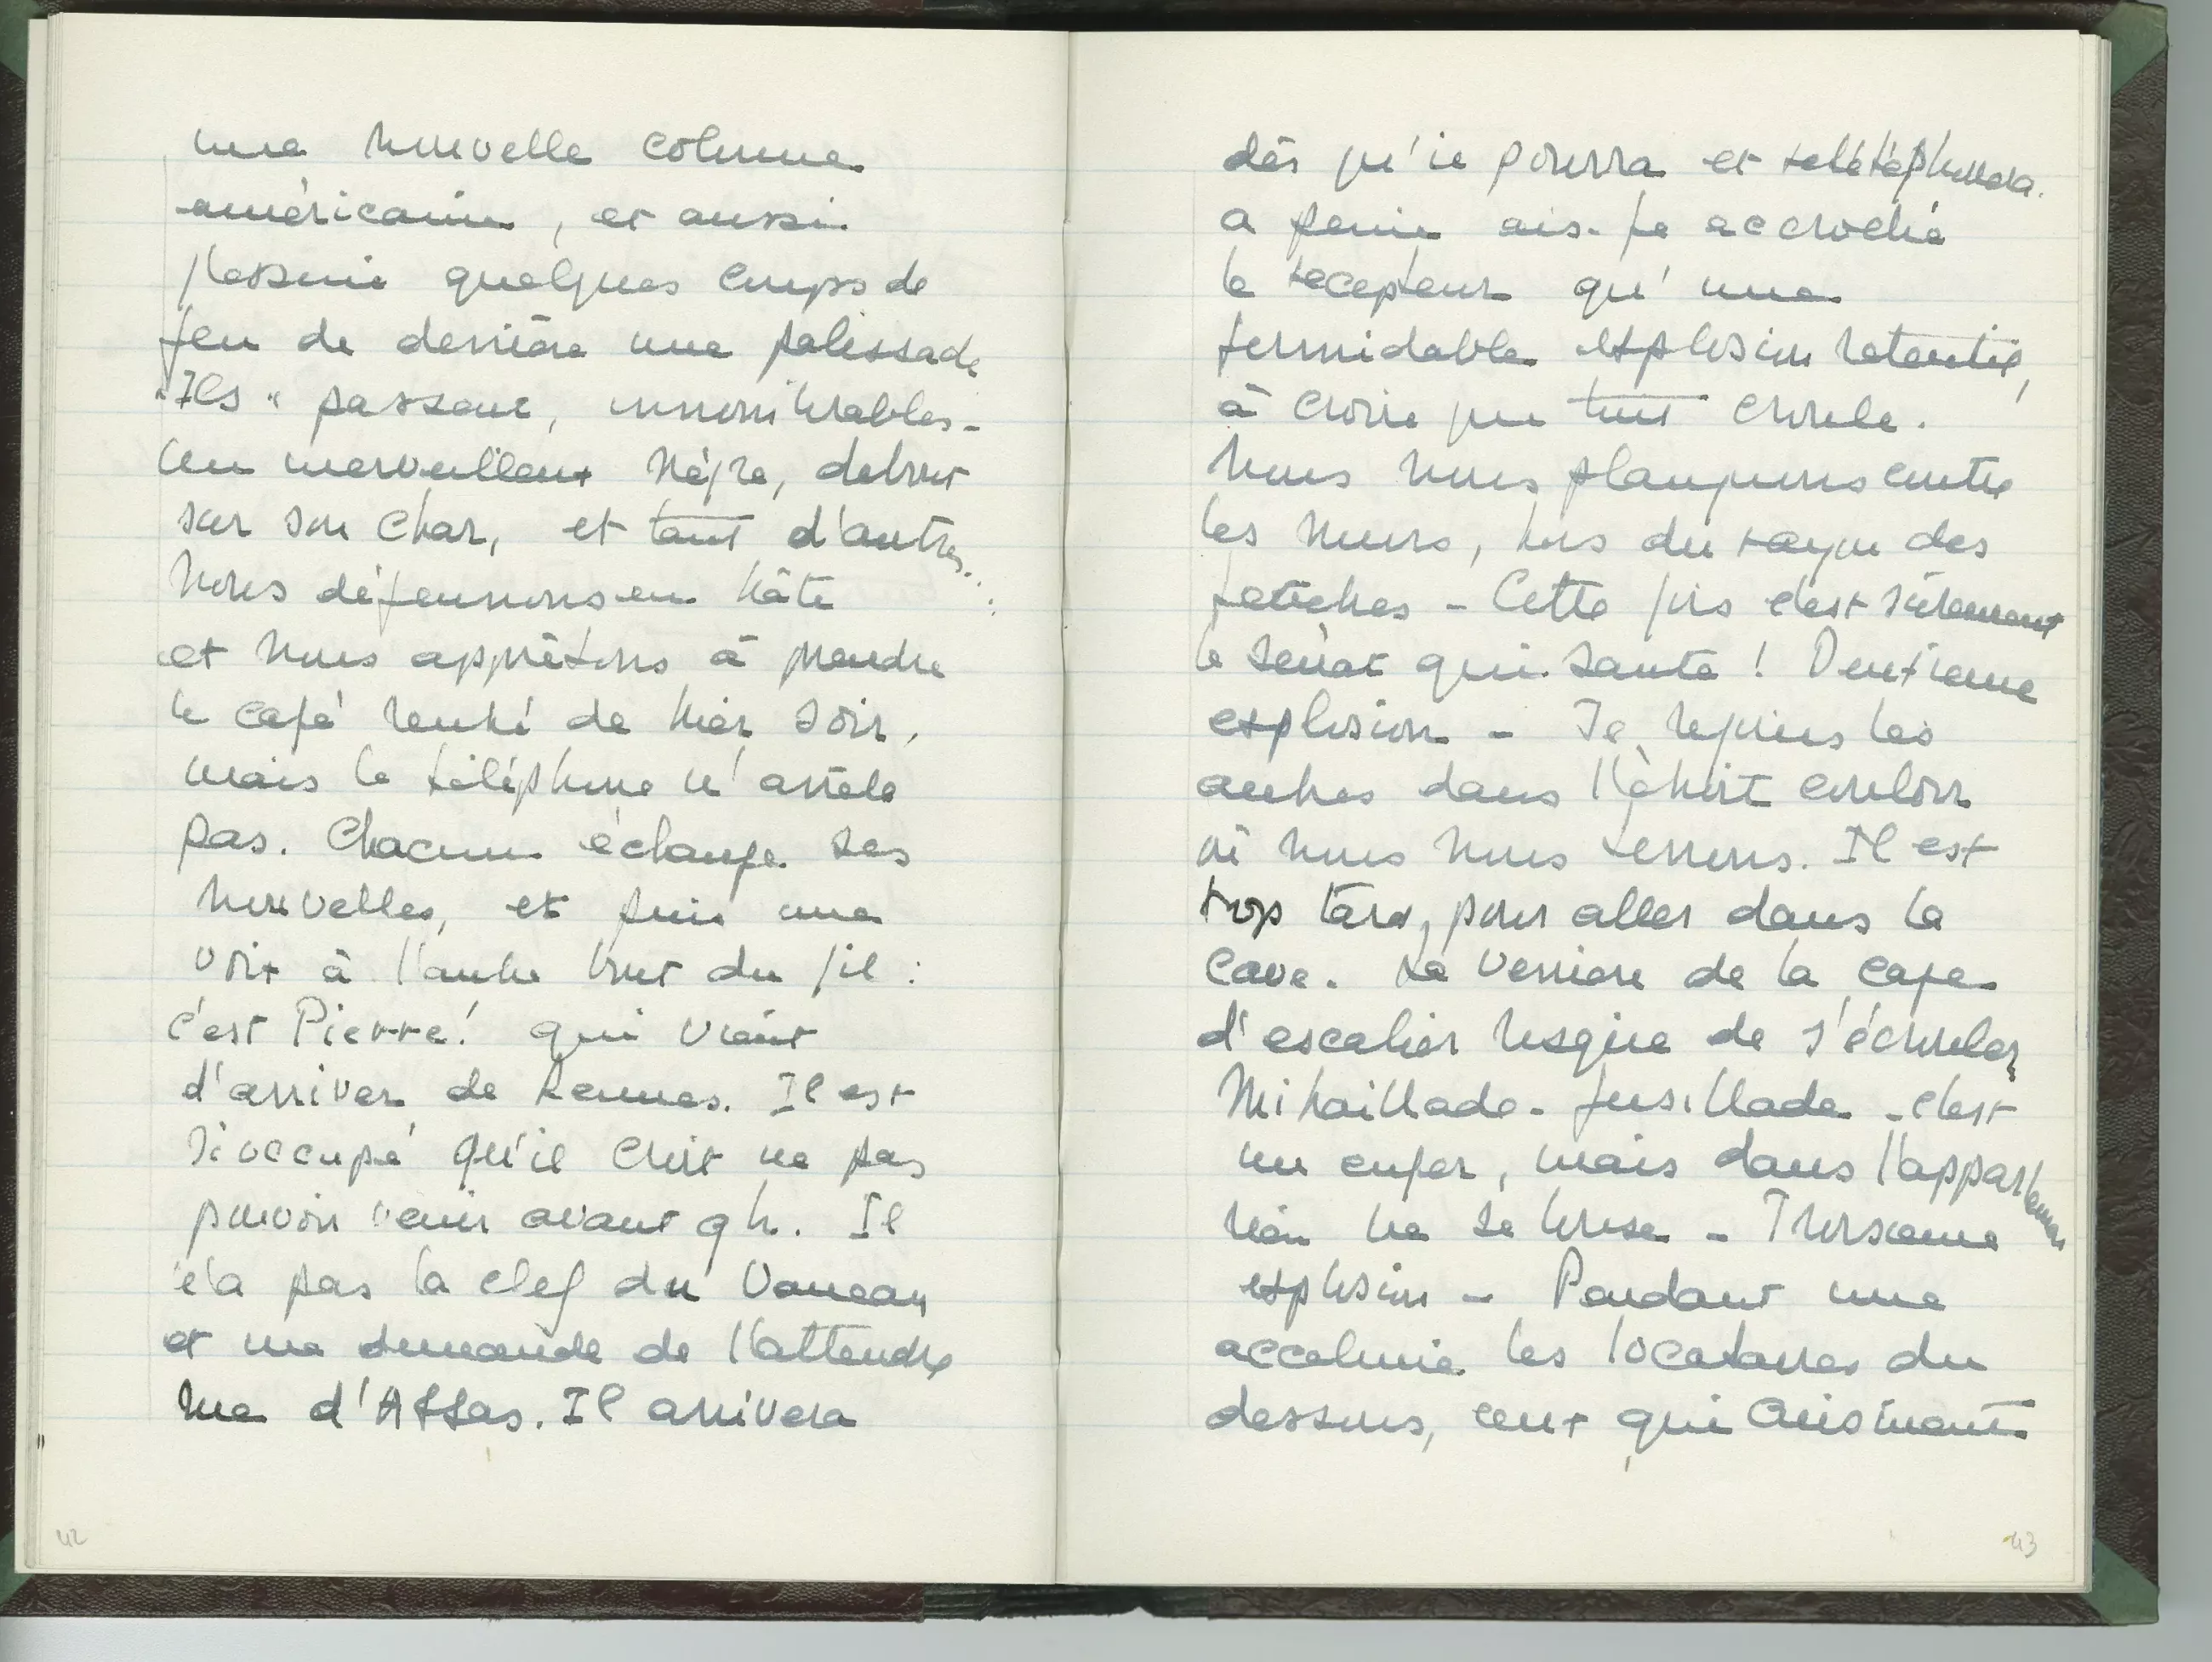 une nouvelle colonne
américaine, et aussi
j'essuie quelques coups de
feu de derrière une palissade
"Ils" passent, innombrables -
Un merveilleux nègre, debout
sur son char, et tant d'autres...
Nous déjeunons en hâte
et nous apprêtons à prendre
le café rentré de hier soir,
mais le téléphone n'arrête
pas. Chacun échange ses
nouvelles, et puis une
voix à l'autre bout du fil :
c'est Pierre! qui vient
d'arriver de Rennes. Il est
si occupé qu'il croit ne pas
pouvoir venir avant 9h. Il
n'a pas la clef du Vaneau
et me demande de l'attendre
rue d'Assas. Il arrivera
42
dès qu'il pourra et retéléphonera.
a peine ais-je accroché
le recepteur qu'une
formidable explosion retentit,
à croire que tout croule.
Nous nous planquons entre
les murs, hors du rayon des
fenêtres - Cette fois c'est sûrement
le Sénat qui saute ! Deuxième
explosion - Je rejoins les
autres dans l'étroit couloir
où nous nous terrons. Il est
trop tard, pour aller dans la
cave. La verrière de la cage
d'escalier risque de s'écrouler,
Mitraillade - fusillade - c'est
un enfer, mais dans l'appartement
rien ne se brise - Troisieme
explosion - Pendant une
accalmie les locataires du
dessus, ceux qui
43